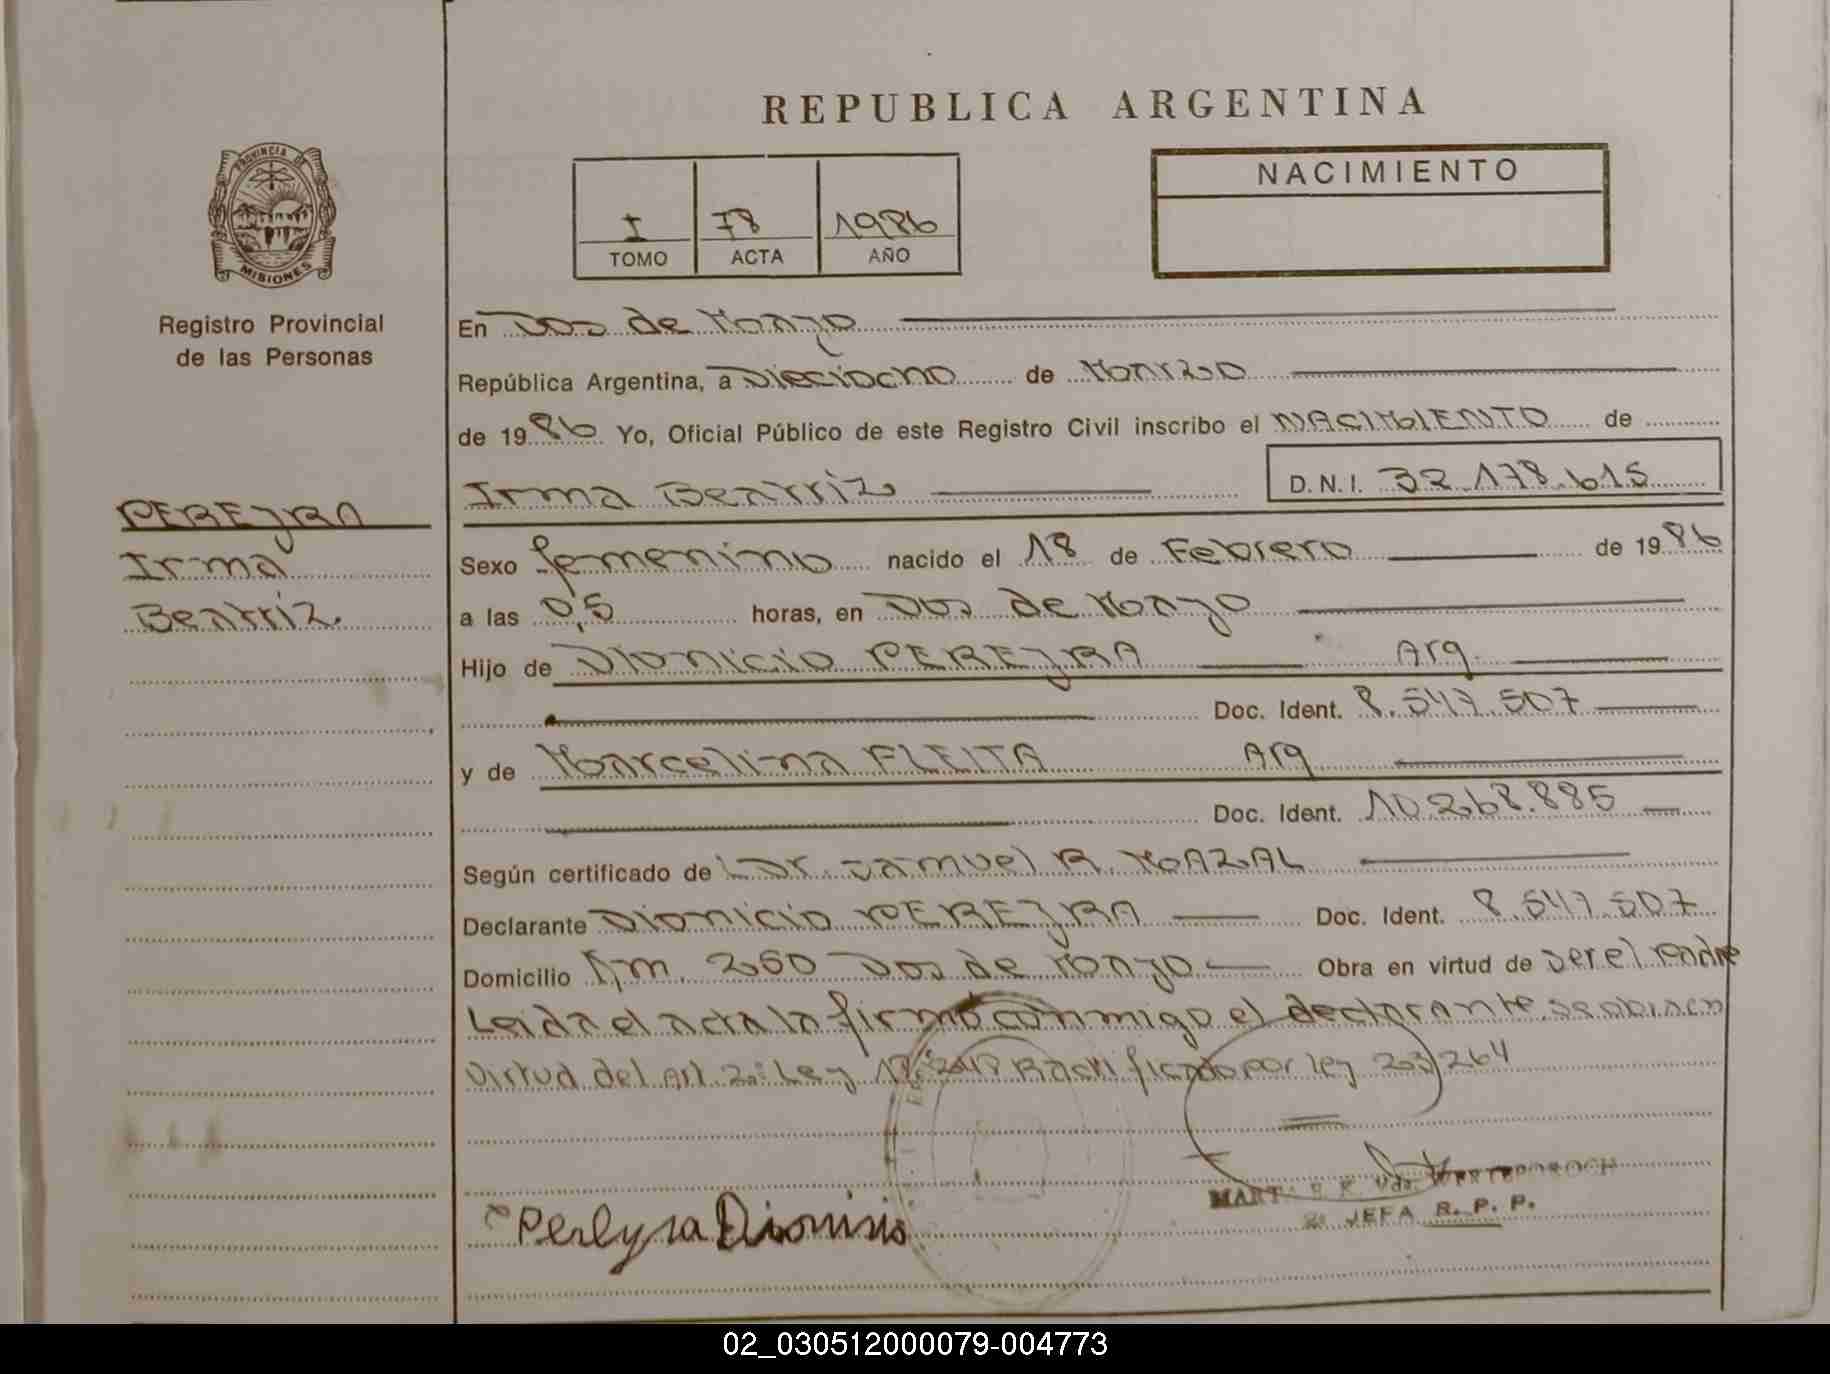 REPUBLICA ARGENTINA
PROVINCIA DE
MISIONES
Registro Provincial
de las Personas
I 78 1986
TOMO ACTA AÑO
NACIMIENTO
En Dos de Mayo
República Argentina, a Dieciocho de Marzo
de 1986 Yo, Oficial Público de este Registro Civil inscribo el NACIMIENTO de
Irma Beatriz D.N.I. 32.178.615
PEREYRA
Irma
Beatriz.
Sexo femenino nacido el 18 de Febrero de 1986
a las 0,5 horas, en Dos de Mayo
Hijo de Dionicio PEREYRA Arg.
Doc. Ident. 8.547.507
y de Marcelina FLEITA Arg
Doc. Ident. 10.268.885
Según certificado de Dr. Samuel R. MAZAL
Declarante Dionicio PEREYRA Doc. Ident. 8.547.507
Domicilio Km. 260 Dos de Mayo Obra en virtud de ser el Padre
Leida el acta la firmó conmigo el declarante, se
virtud del Art. 2º Ley por ley 23264
Dionisio
JEFA R. P. P.
02_030512000079-004773